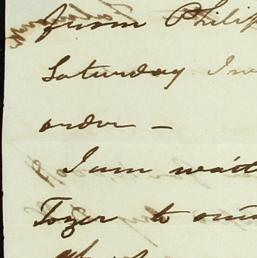 from Philip
Saturday I w
order –
I am wait
Tozer to